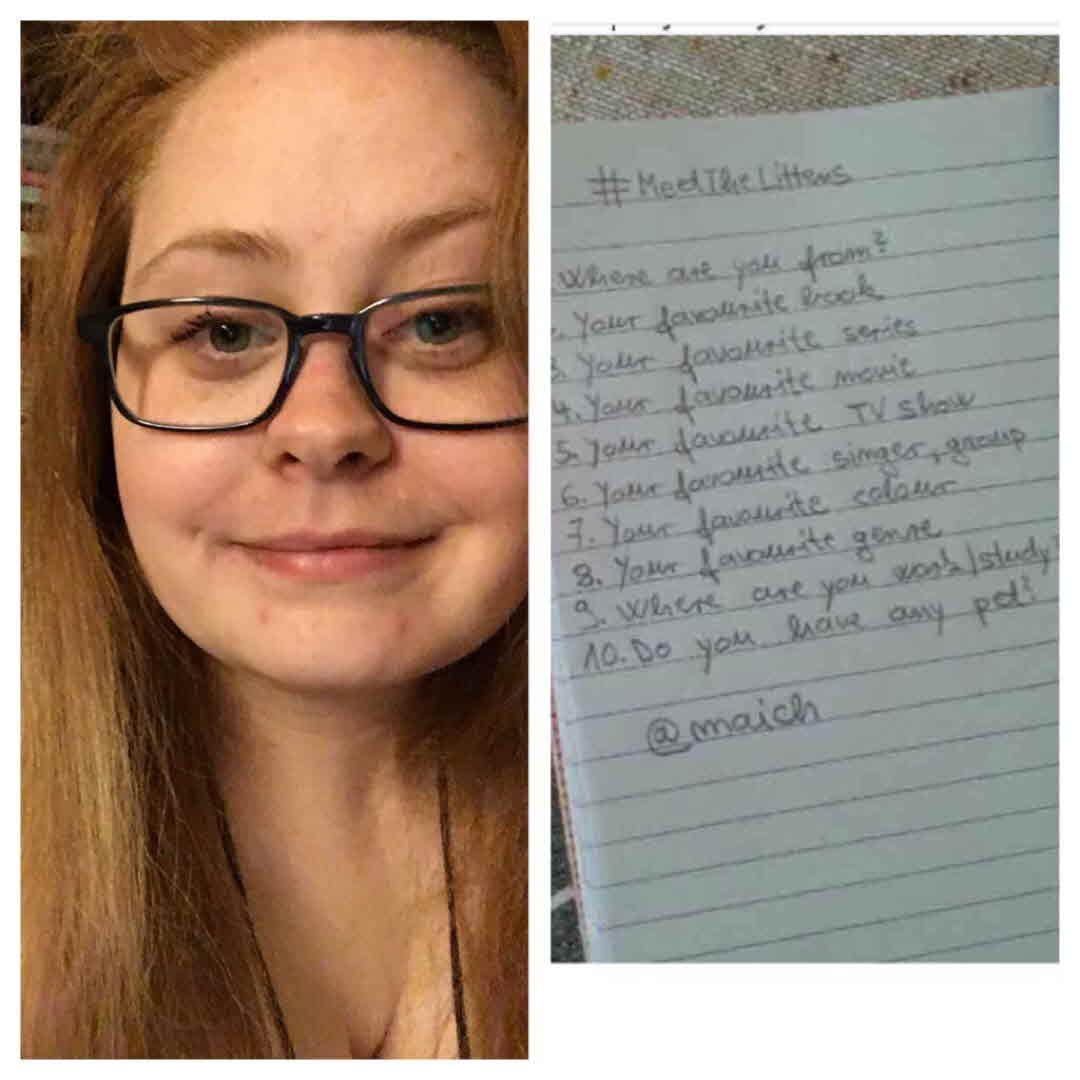 #MeetTheLittens
Where are you from?
. Your favourite book
3. Your favourite series
4. Your favourite movie
5. Your favourite TV show
6. Your favourite singer, group
7. Your favourite colour
8. Your favourite genre
9. Where are you work/study?
10. Do you have any pet?
@maich